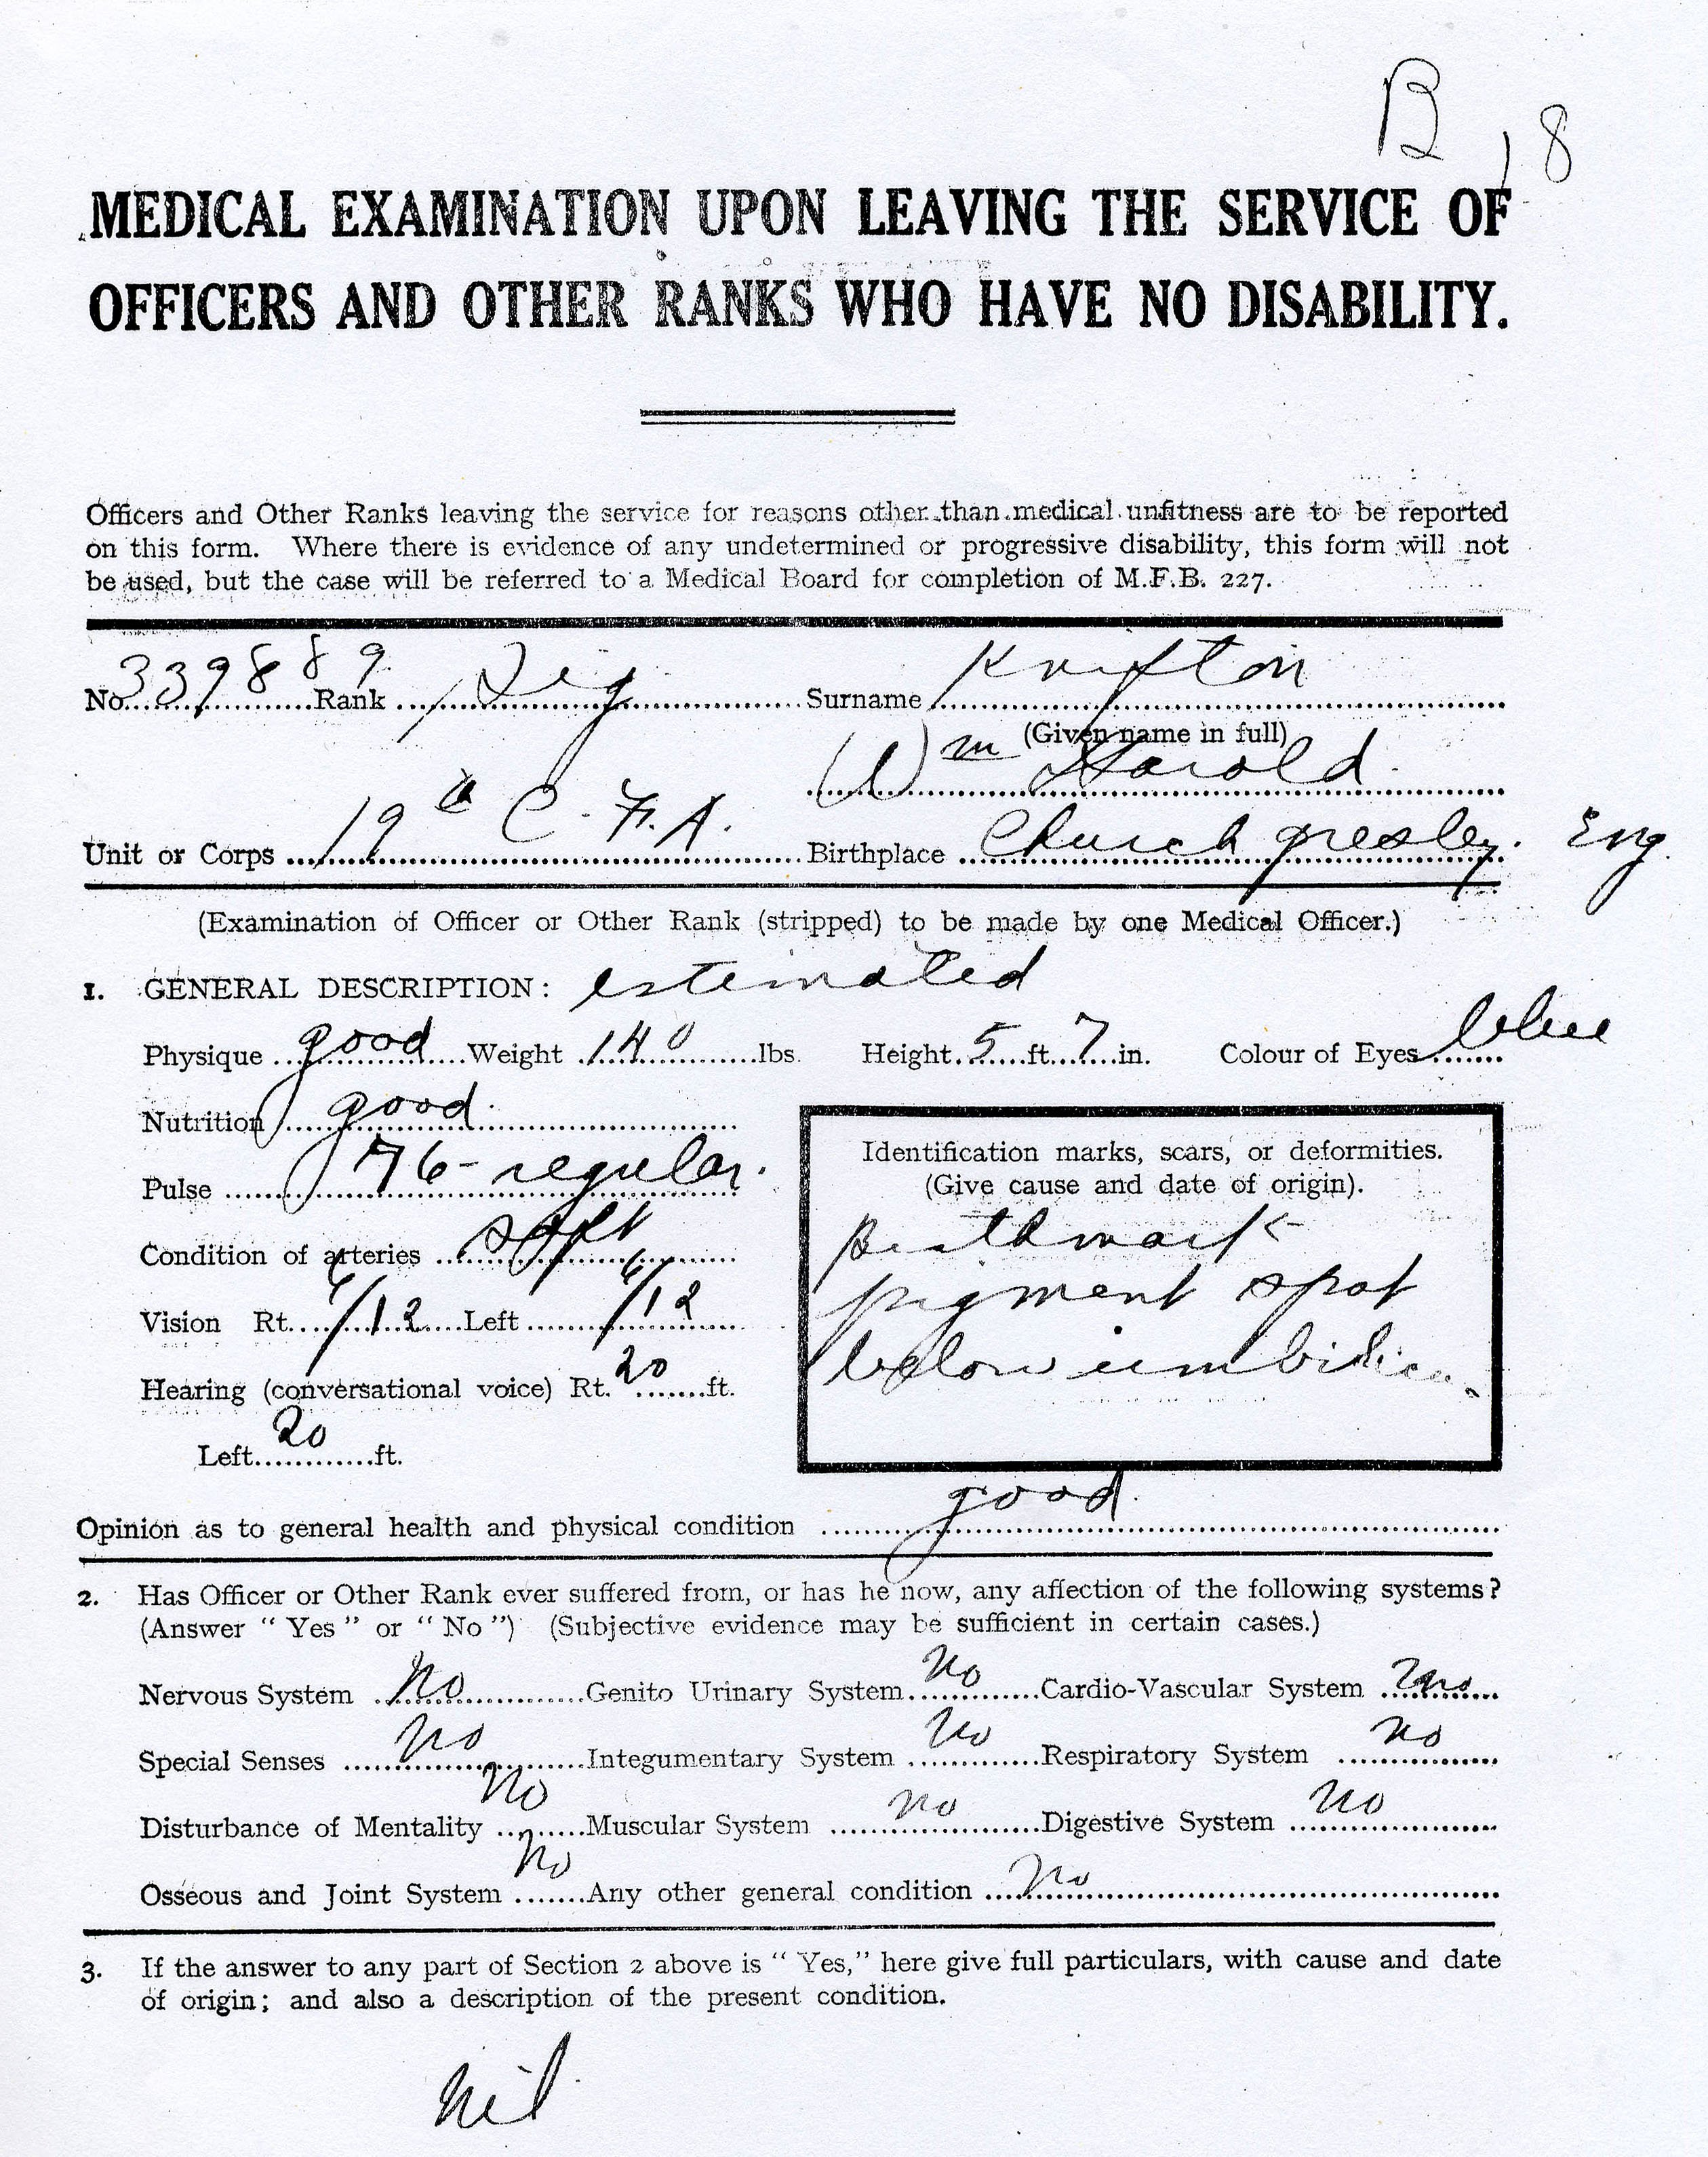 B 18
MEDICAL EXAMINATION UPON LEAVING THE SERVICE OF
OFFICERS AND OTHER RANKS WHO HAVE NO DISABILITY.
Officers and Other Ranks leaving the service for reasons other than medical unfitness are to be reported
on this form. Where there is evidence of any undetermined or progressive disability, this form will not
be used, but the case will be referred to a Medical Board for completion of M.F.B. 227.
No. 339889 Rank Sig Surname
(Given name in full)
Wm Harold
Unit or Corps 19th C.F.A. Birthplace Church gresley. Eng.
(Examination of Officer or Other Rank (stripped) to be made by one Medical Officer.)
1. GENERAL DESCRIPTION: estimated
Physique good Weight 140 lbs. Height 5 ft. 7 in. Colour of Eyes blue
Nutrition good.
Identification marks, scars, or deformities.
(Give cause and date of origin).
Pulse 76 - regular.
Condition of arteries soft
Birthmark
pigment spot
below umbilicus
Vision Rt. 6/12 Left 6/12
Hearing (conversational voice) Rt. 20 ft.
Left 20 ft.
Opinion as to general health and physical condition good.
2. Has Officer or Other Rank ever suffered from, or has he now, any affection of the following systems?
(Answer "Yes" or "No") (Subjective evidence may be sufficient in certain cases.)
Nervous System No Genito Urinary System No Cardio-Vascular System no
Special Senses No Integumentary System No Respiratory System no
Disturbance of Mentality No Muscular System no Digestive System no
Osseous and Joint System No Any other general condition No
3. If the answer to any part of Section 2 above is "Yes," here give full particulars, with cause and date
of origin; and also a description of the present condition.
Nil